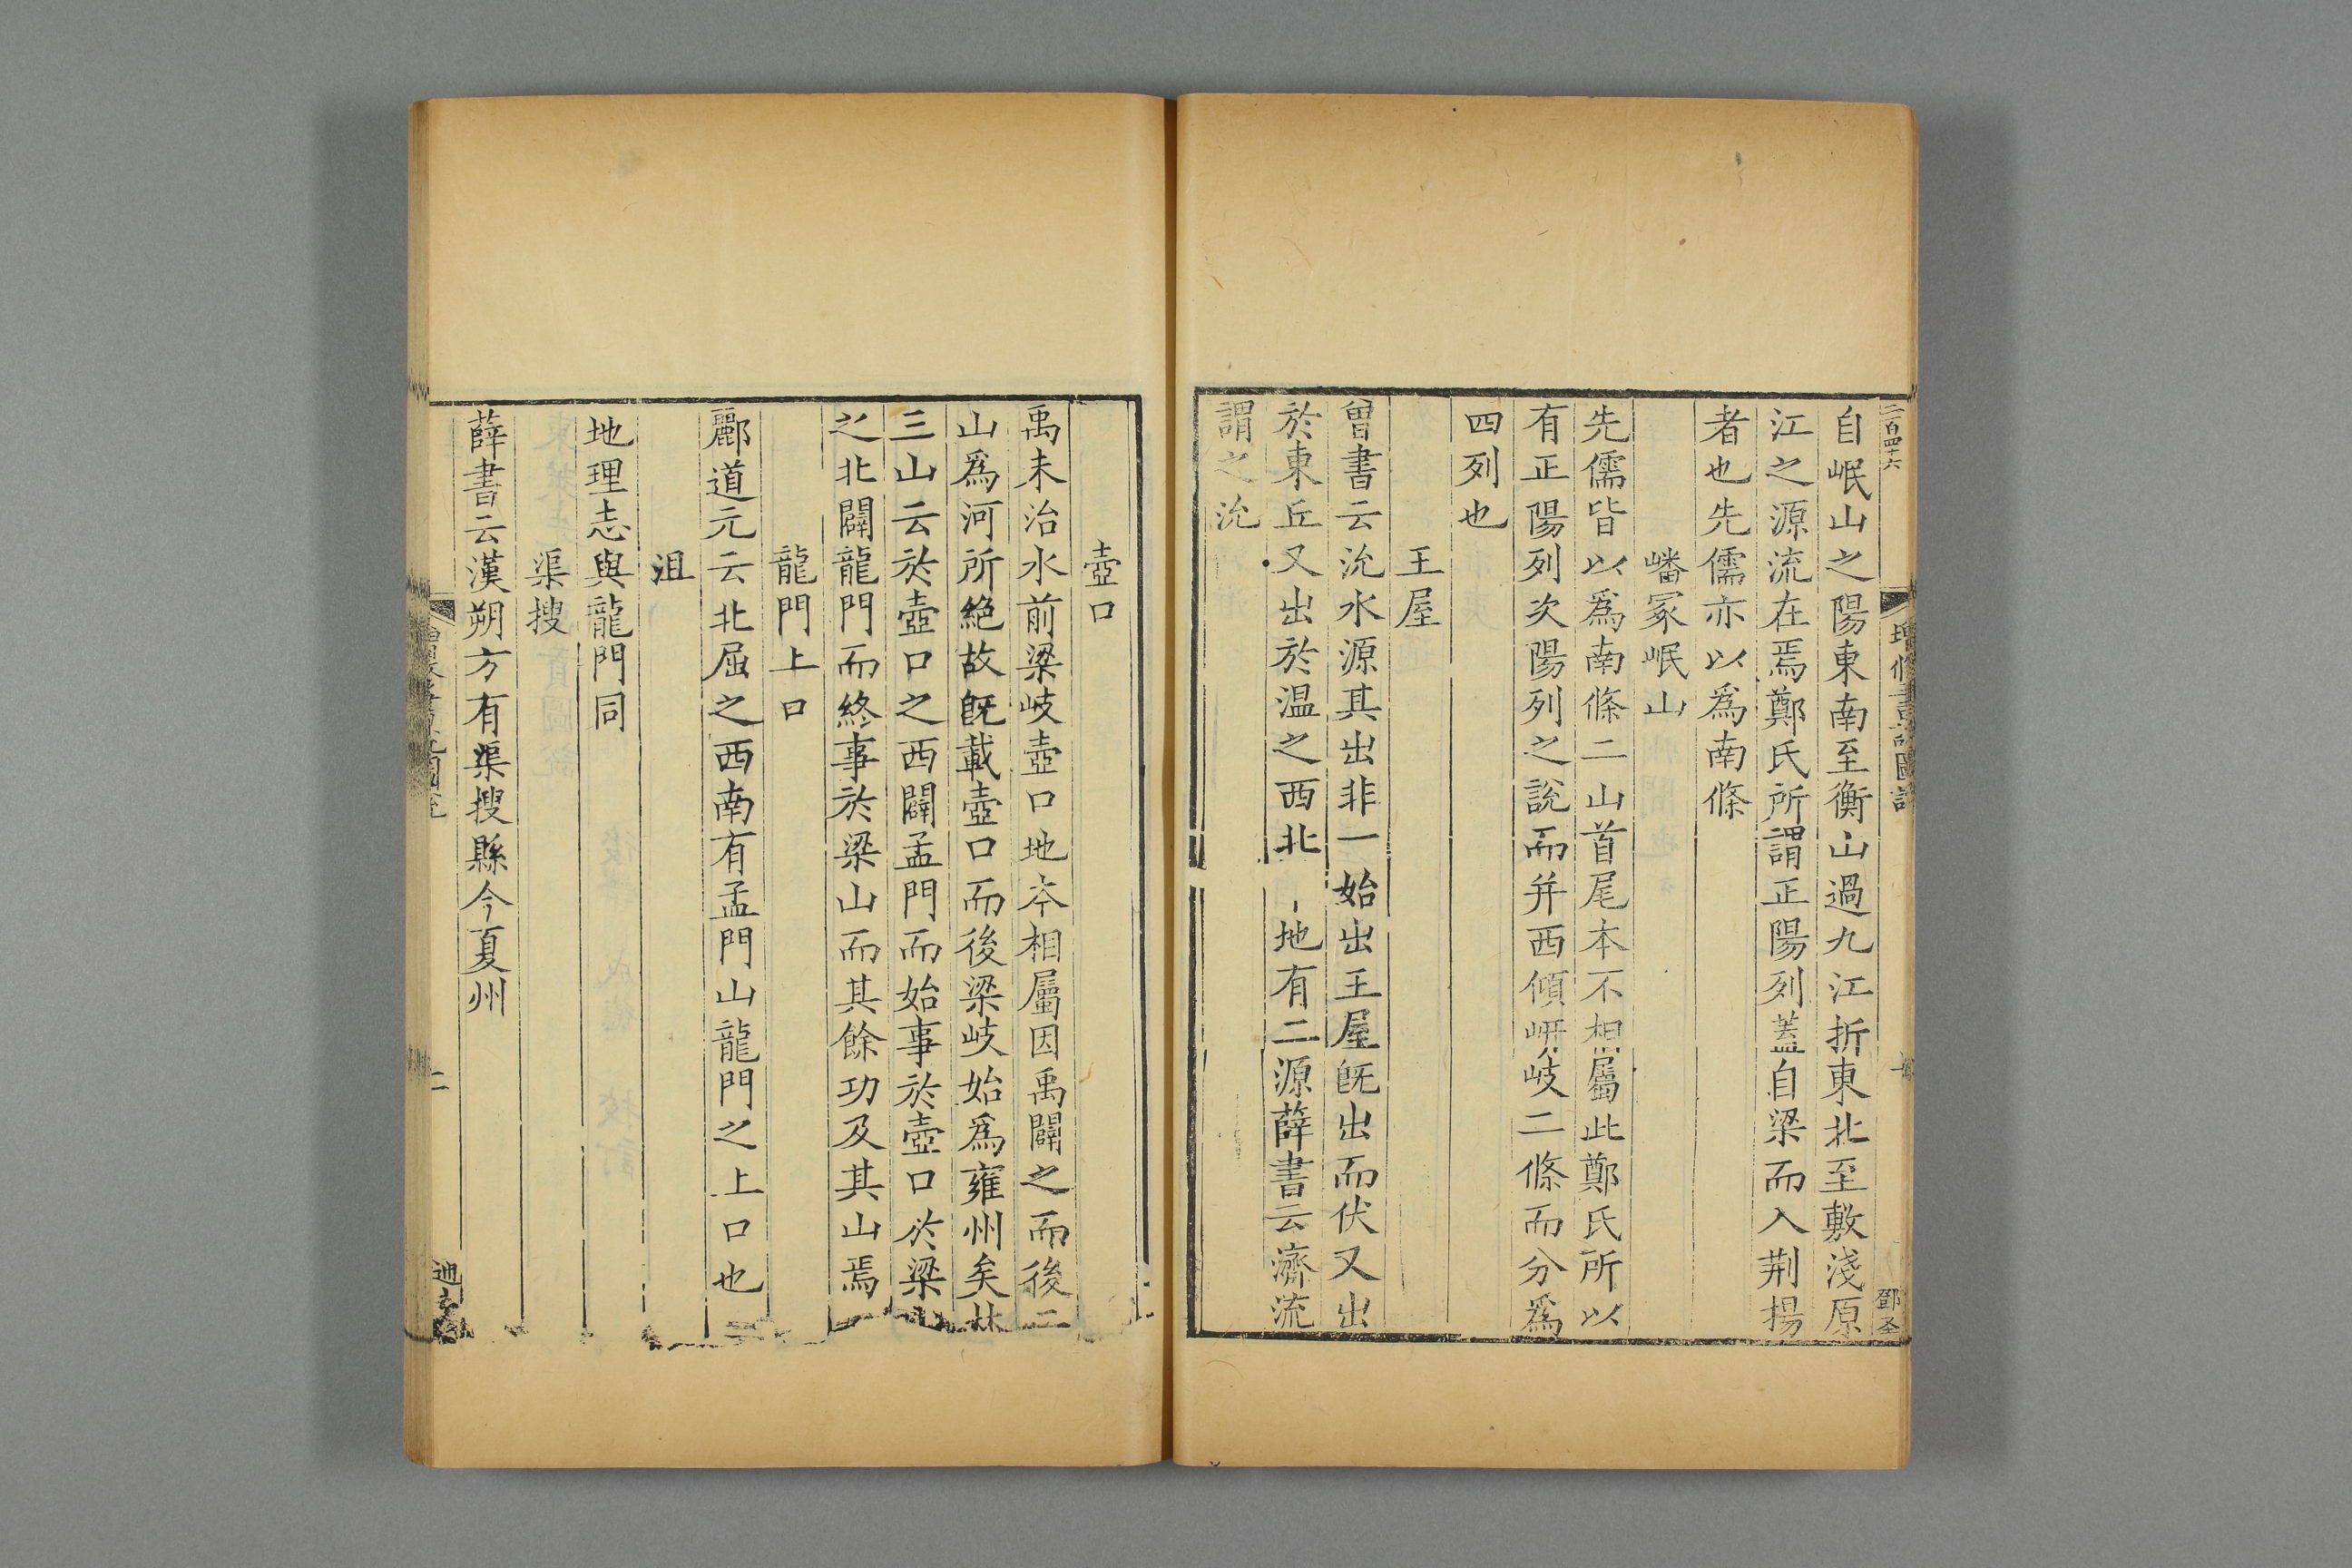 二百四十六
自岷山之陽東南至衡山過九江折東北至敷淺原
江之源流在焉鄭氏所謂正陽列蓋自梁而入荆揚
者也先儒亦以爲南條
嶓冢岷山
先儒皆以爲南條二山首尾本不相屬此鄭氏所以
有正陽列次陽列之說而并西傾岍岐二條而分爲
四列也
王屋
曾書云沇水源其出非一始出王屋既出而伏又出
於東丘又出於温之西北地有二源薛書云濟流
謂之沇
壺口
禹未治水前梁岐壺口地夲相屬因禹闢之而後二
山爲河所絶故既載壺口而後梁岐始爲雍州矣林
三山云於壺口之西闢孟門而始事於壺口於梁山
之北闢龍門而終事於梁山而其餘功及其山焉
龍門上口
酈道元云北屈之西南有孟門山龍門之上口也
沮
地理志與龍門同
渠搜
薛書云漢朔方有渠搜縣今夏州
二